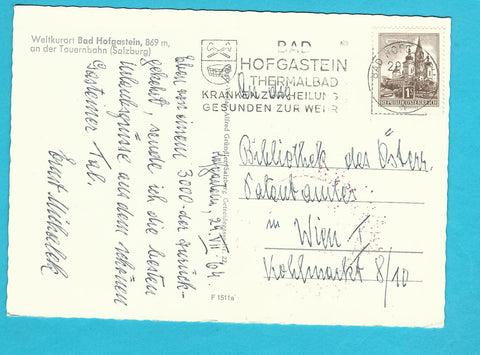 Weltkurort Bad Hofgastein, 869 m,
an der Tauernbahn (Salzburg)
Hofgastein, 29. VII 64.
Eben von einem 3000-der zurück-
gekehrt, sende ich die besten
Urlaubsgrüße aus dem schönen
Gasteiner Tal.
Ernst Mihalek
F 1511a
BAD
HOFGASTEIN
THERMALBAD
KRANKEN ZUR HEILUNG
GESUNDEN ZUR WEHR
BAD HOFG
REPUBLIK ÖSTERREICH
An die
Bibliothek des Österr.
Patentamtes
in Wien I
Kohlmarkt 8/10